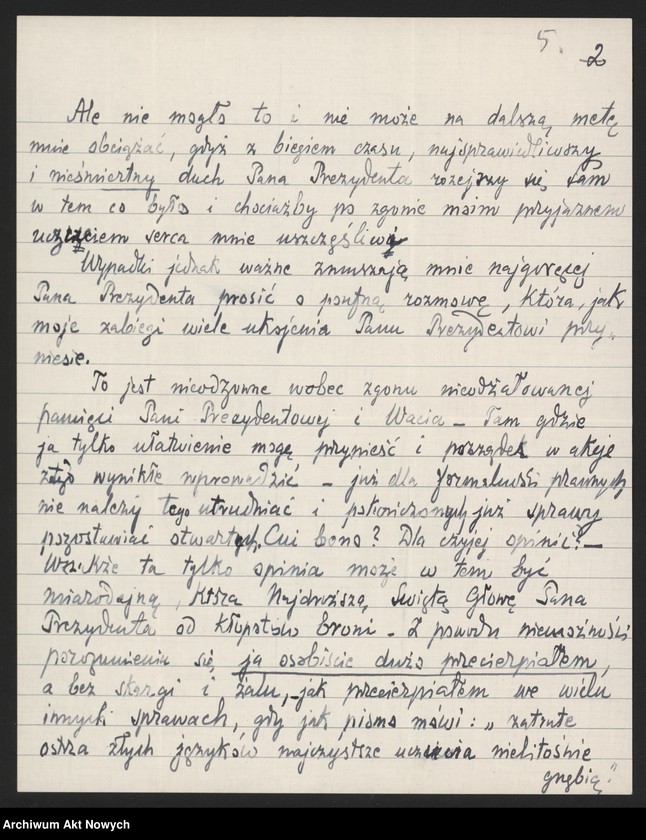 5. 2
Ale nie mogło to i nie może na dalszą metę
mnie obciążać, gdyż z biegiem czasu, najsprawiedliwszy
i nieśmiertny duch Pana Prezydenta rozejrzy się sam
w tem co było i chociażby po zgonie moim przyjaznem
uczuciem serca mnie uszczęśliwi
Wypadki jednak ważne zmuszają mnie najgoręcej
Pana Prezydenta prosić o poufną rozmowę, która, jak
moje zabiegi wiele ukojenia Panu Prezydentowi przy-
niesie.
To jest nieodzowne wobec zgonu nieodżałowanej
pamięci Pani Prezydentowej i Wacia – Tam gdzie
ja tylko ułatwienie mogę przynieść i porządek w akcje
wynikłe wprowadzić – już dla formalności prawnych
nie należy tego utrudniać i pokończonych już sprawy
pozostawiać otwartych. Cui bono? Dla czyjej opinii? –
Wszakże ta tylko opinia może w tem być
miarodajną, która Najdroższą Świętą Głowę Pana
Prezydenta od kłopotów broni – Z powodu niemożności
porozumienia się, ja osobiście dużo przecierpiałem,
a bez skargi i żalu, – jak przecierpiałem we wielu
innych sprawach, gdy jak pismo mówi: „zatrute
ostrza złych języków najczystsze uczucia nielitośnie
gnębią."
Archiwum Akt Nowych